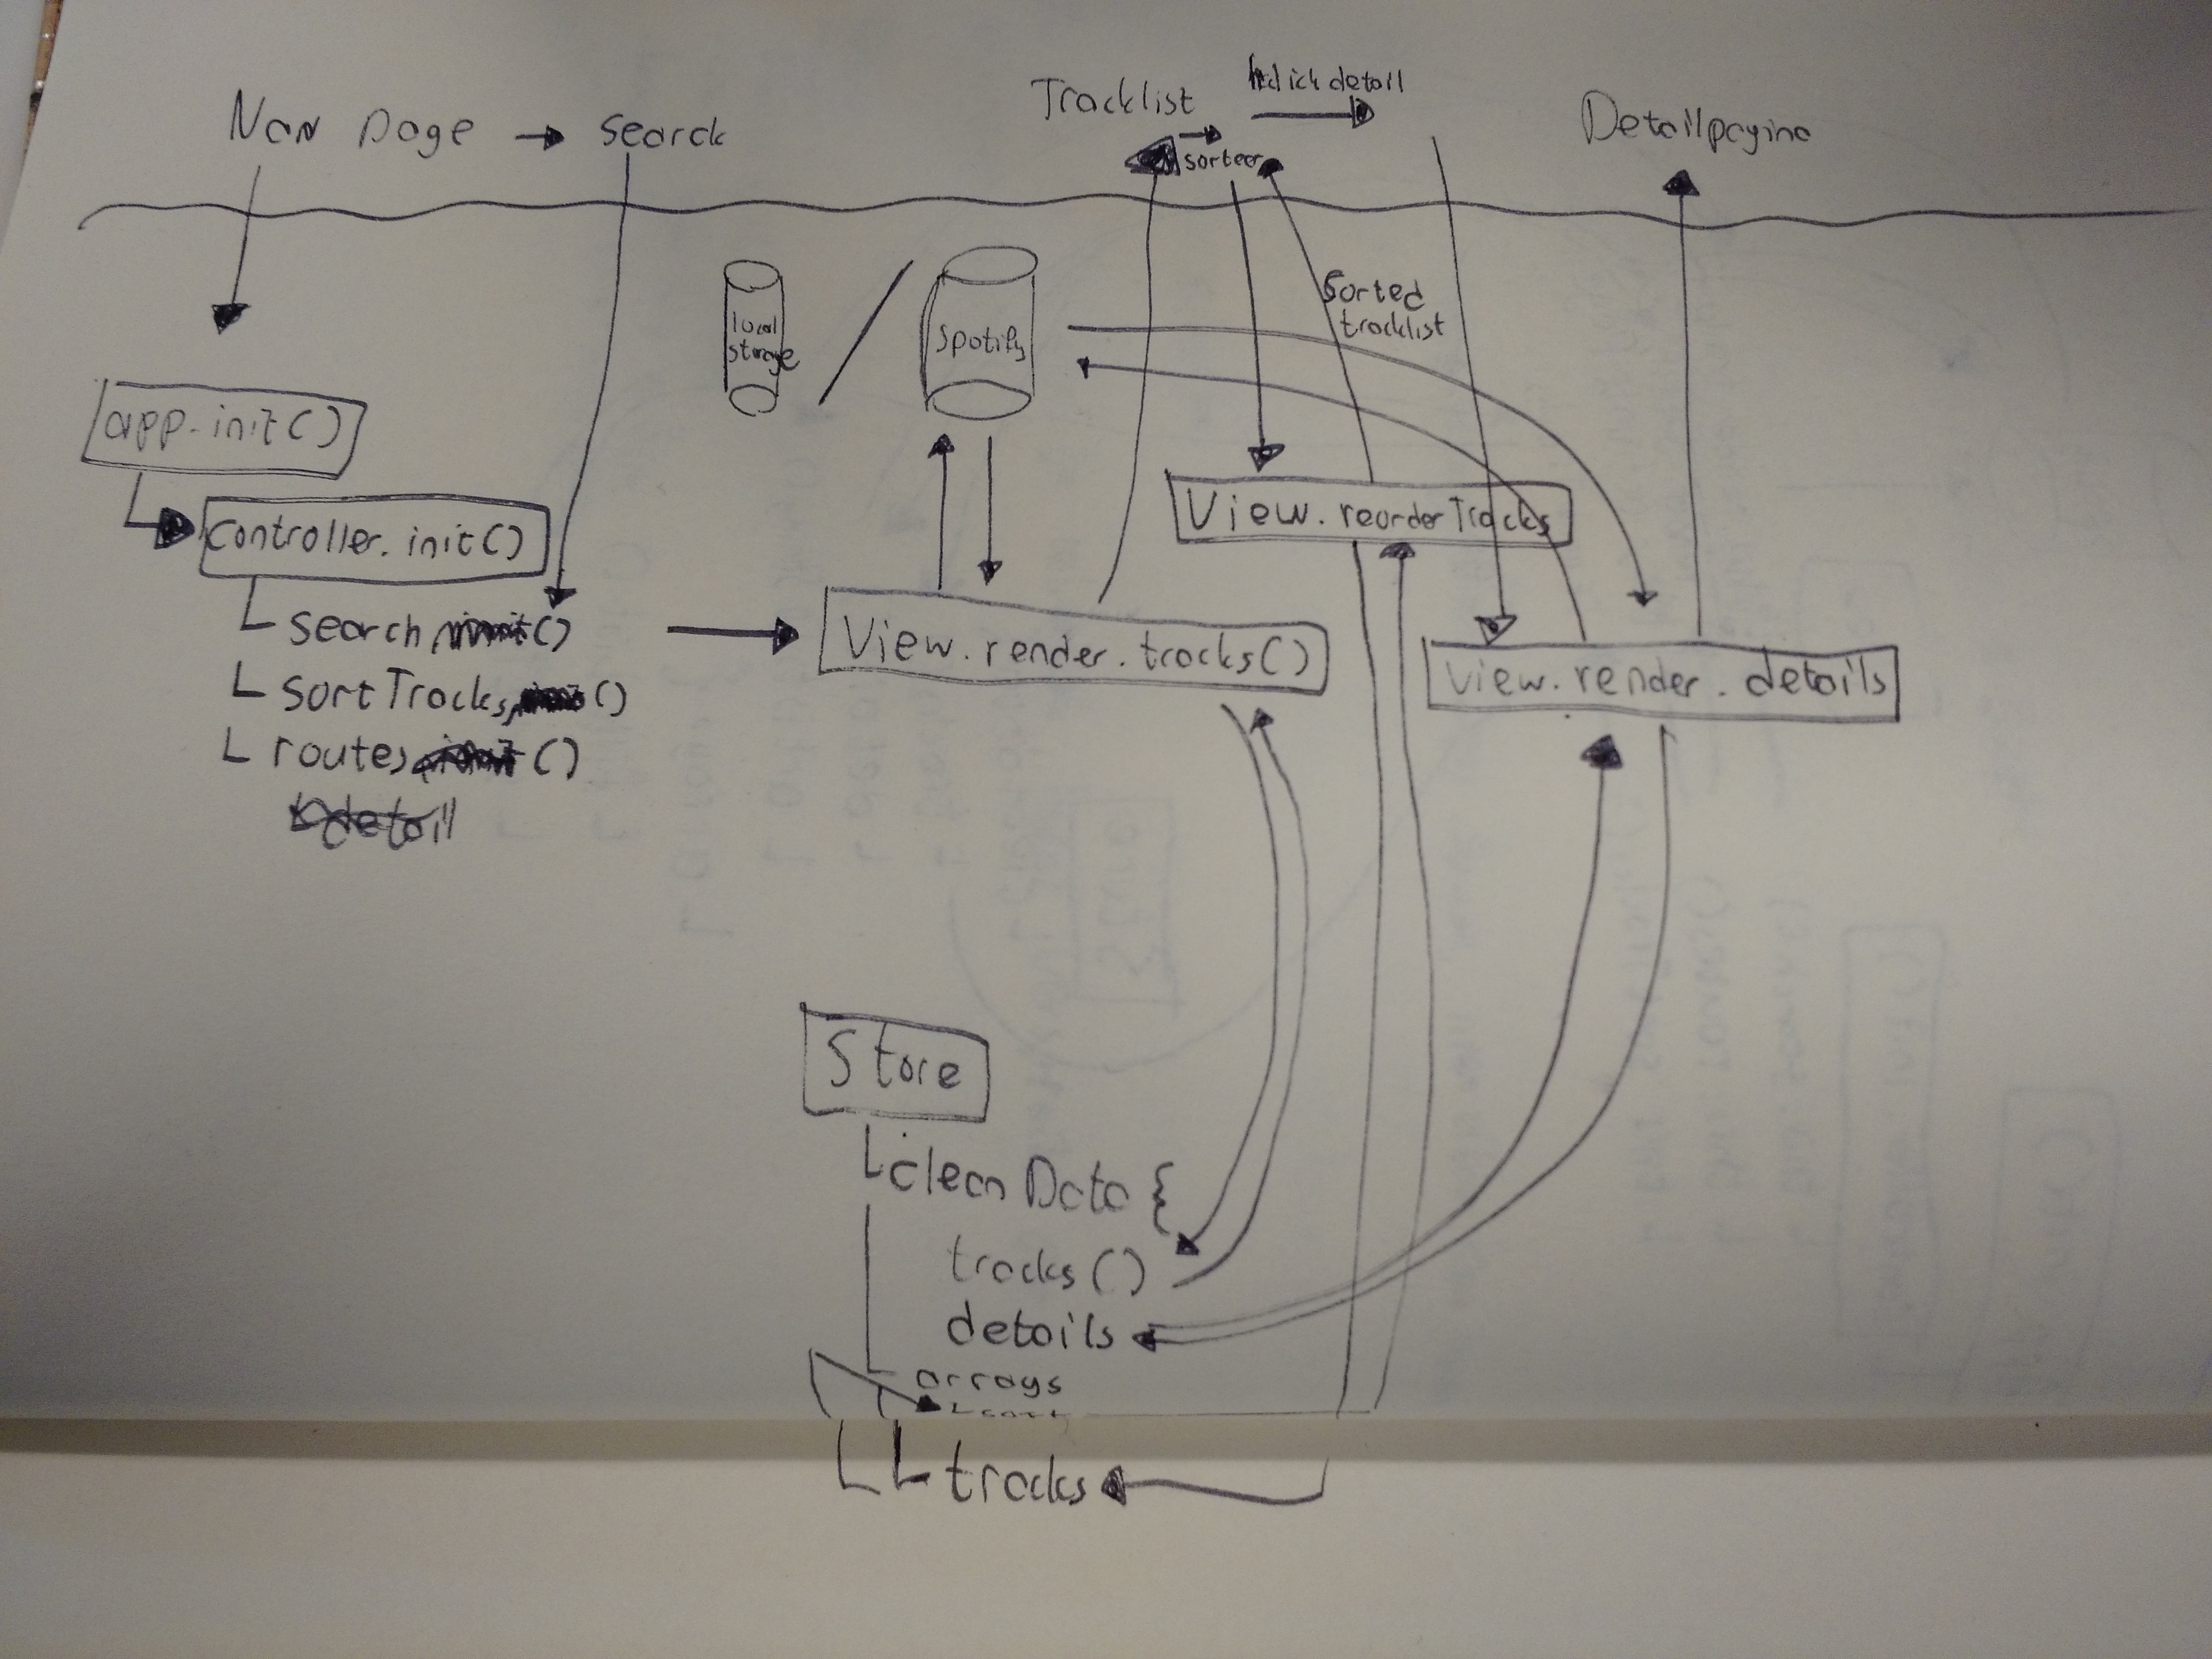 Nav page → search
Tracklist
click detail
sorteer
Detailpagina
local
storage
Spotify
Sorted
tracklist
app.init()
controller.init()
search ()
sortTracks ()
routes ()
detail
View.reorderTracks
View.render.tracks()
view.render.details
Store
clean Data {
tracks()
details
arrays
tracks